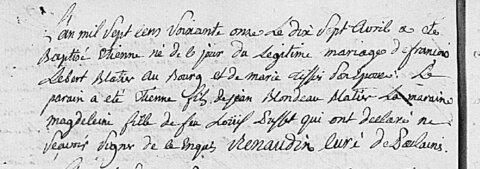 L'an mil Sept cens Soixante onze Le dix Sept Avril a ete
Baptisé Etienne né de le jour du legitime mariage d'francois
Lebert Blatier au Bourg et de marie son Epouse. Le
parain a été Etienne fils de jean Blondeau Blatier La maraine
magdeleine fille de feu Louis qui ont declaré ne
Scavoir signer de ce Enquis Renaudin Curé de Boulains.